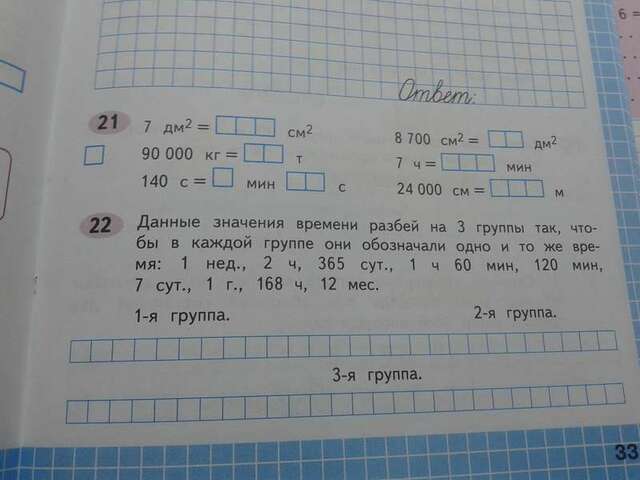 6 =
Ответ:
21 7 дм² = см² 8 700 см² = дм²
90 000 кг = т 7 ч = мин
140 с = мин с 24 000 см = м
22 Данные значения времени разбей на 3 группы так, что-
бы в каждой группе они обозначали одно и то же вре-
мя: 1 нед., 2 ч, 365 сут., 1 ч 60 мин, 120 мин,
7 сут., 1 г., 168 ч, 12 мес.
1-я группа. 2-я группа.
3-я группа.
33